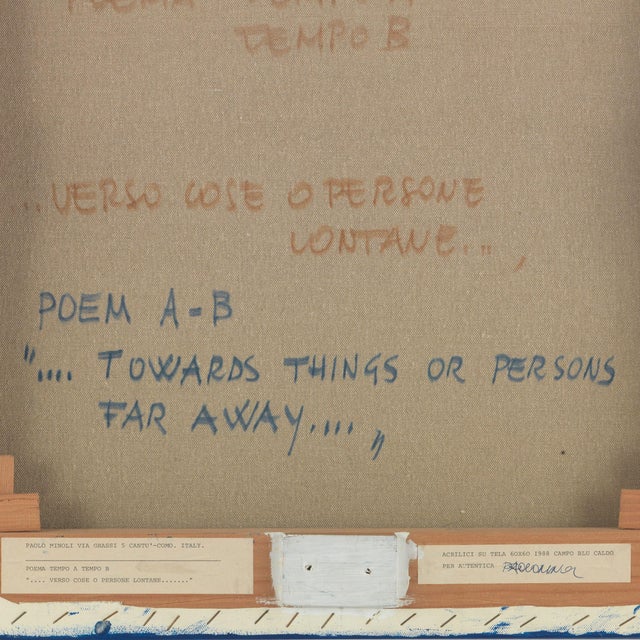 POEMA TEMPO A
TEMPO B
..VERSO COSE O PERSONE
LONTANE..„
POEM A=B
".... TOWARDS THINGS OR PERSONS
FAR AWAY.... „
PAOLO MINOLI VIA GRASSI 5 CANTU'-COMO. ITALY.
POEMA TEMPO A TEMPO B
".... VERSO COSE O PERSONE LONTANE......."
ACRILICI SU TELA 60X60 1988 CAMPO BLU CALDO
PER AUTENTICA